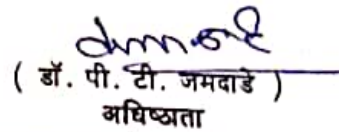 ( डॉ. पी. टी. जमदाडे )
अधिष्ठाता